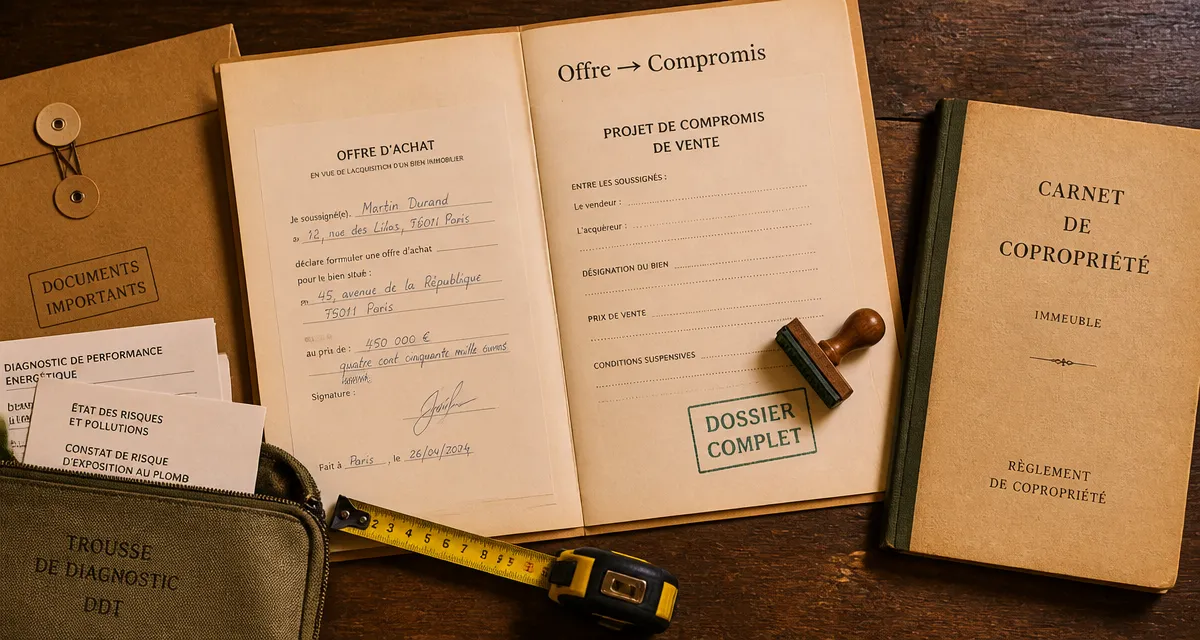 DOCUMENTS
IMPORTANTS
DIAGNOSTIC DE PERFORMANCE
ENERGÉTIQUE
ÉTAT DES RISQUES
ET POLLUTIONS
CONSTAT DE RISQUE
D'EXPOSITION AU PLOMB
TROUSSE
DE DIAGNOSTIC
DDT
OFFRE D'ACHAT
EN VUE DE L'ACQUISITION D'UN BIEN IMMOBILIER
Je soussigné(e). Martin Durand
12, rue des Lilas, 75011 Paris
déclare formuler une offre d'achat
pour le bien situé :
45, avenue de la République
75011 Paris
au prix de : 450 000 €
quatre cent cinquante mille
Signature :
Fait à Paris, le 26/04/2024
Offre → Compromis
PROJET DE COMPROMIS
DE VENTE
ENTRE LES SOUSSIGNÉS :
Le vendeur :
L'acquéreur :
DÉSIGNATION DU BIEN
PRIX DE VENTE
CONDITIONS SUSPENSIVES
DOSSIER
COMPLET
2 3 4 5 6 7 8 9
CARNET
DE
COPROPRIÉTÉ
IMMEUBLE
RÈGLEMENT
DE COPROPRIÉTÉ